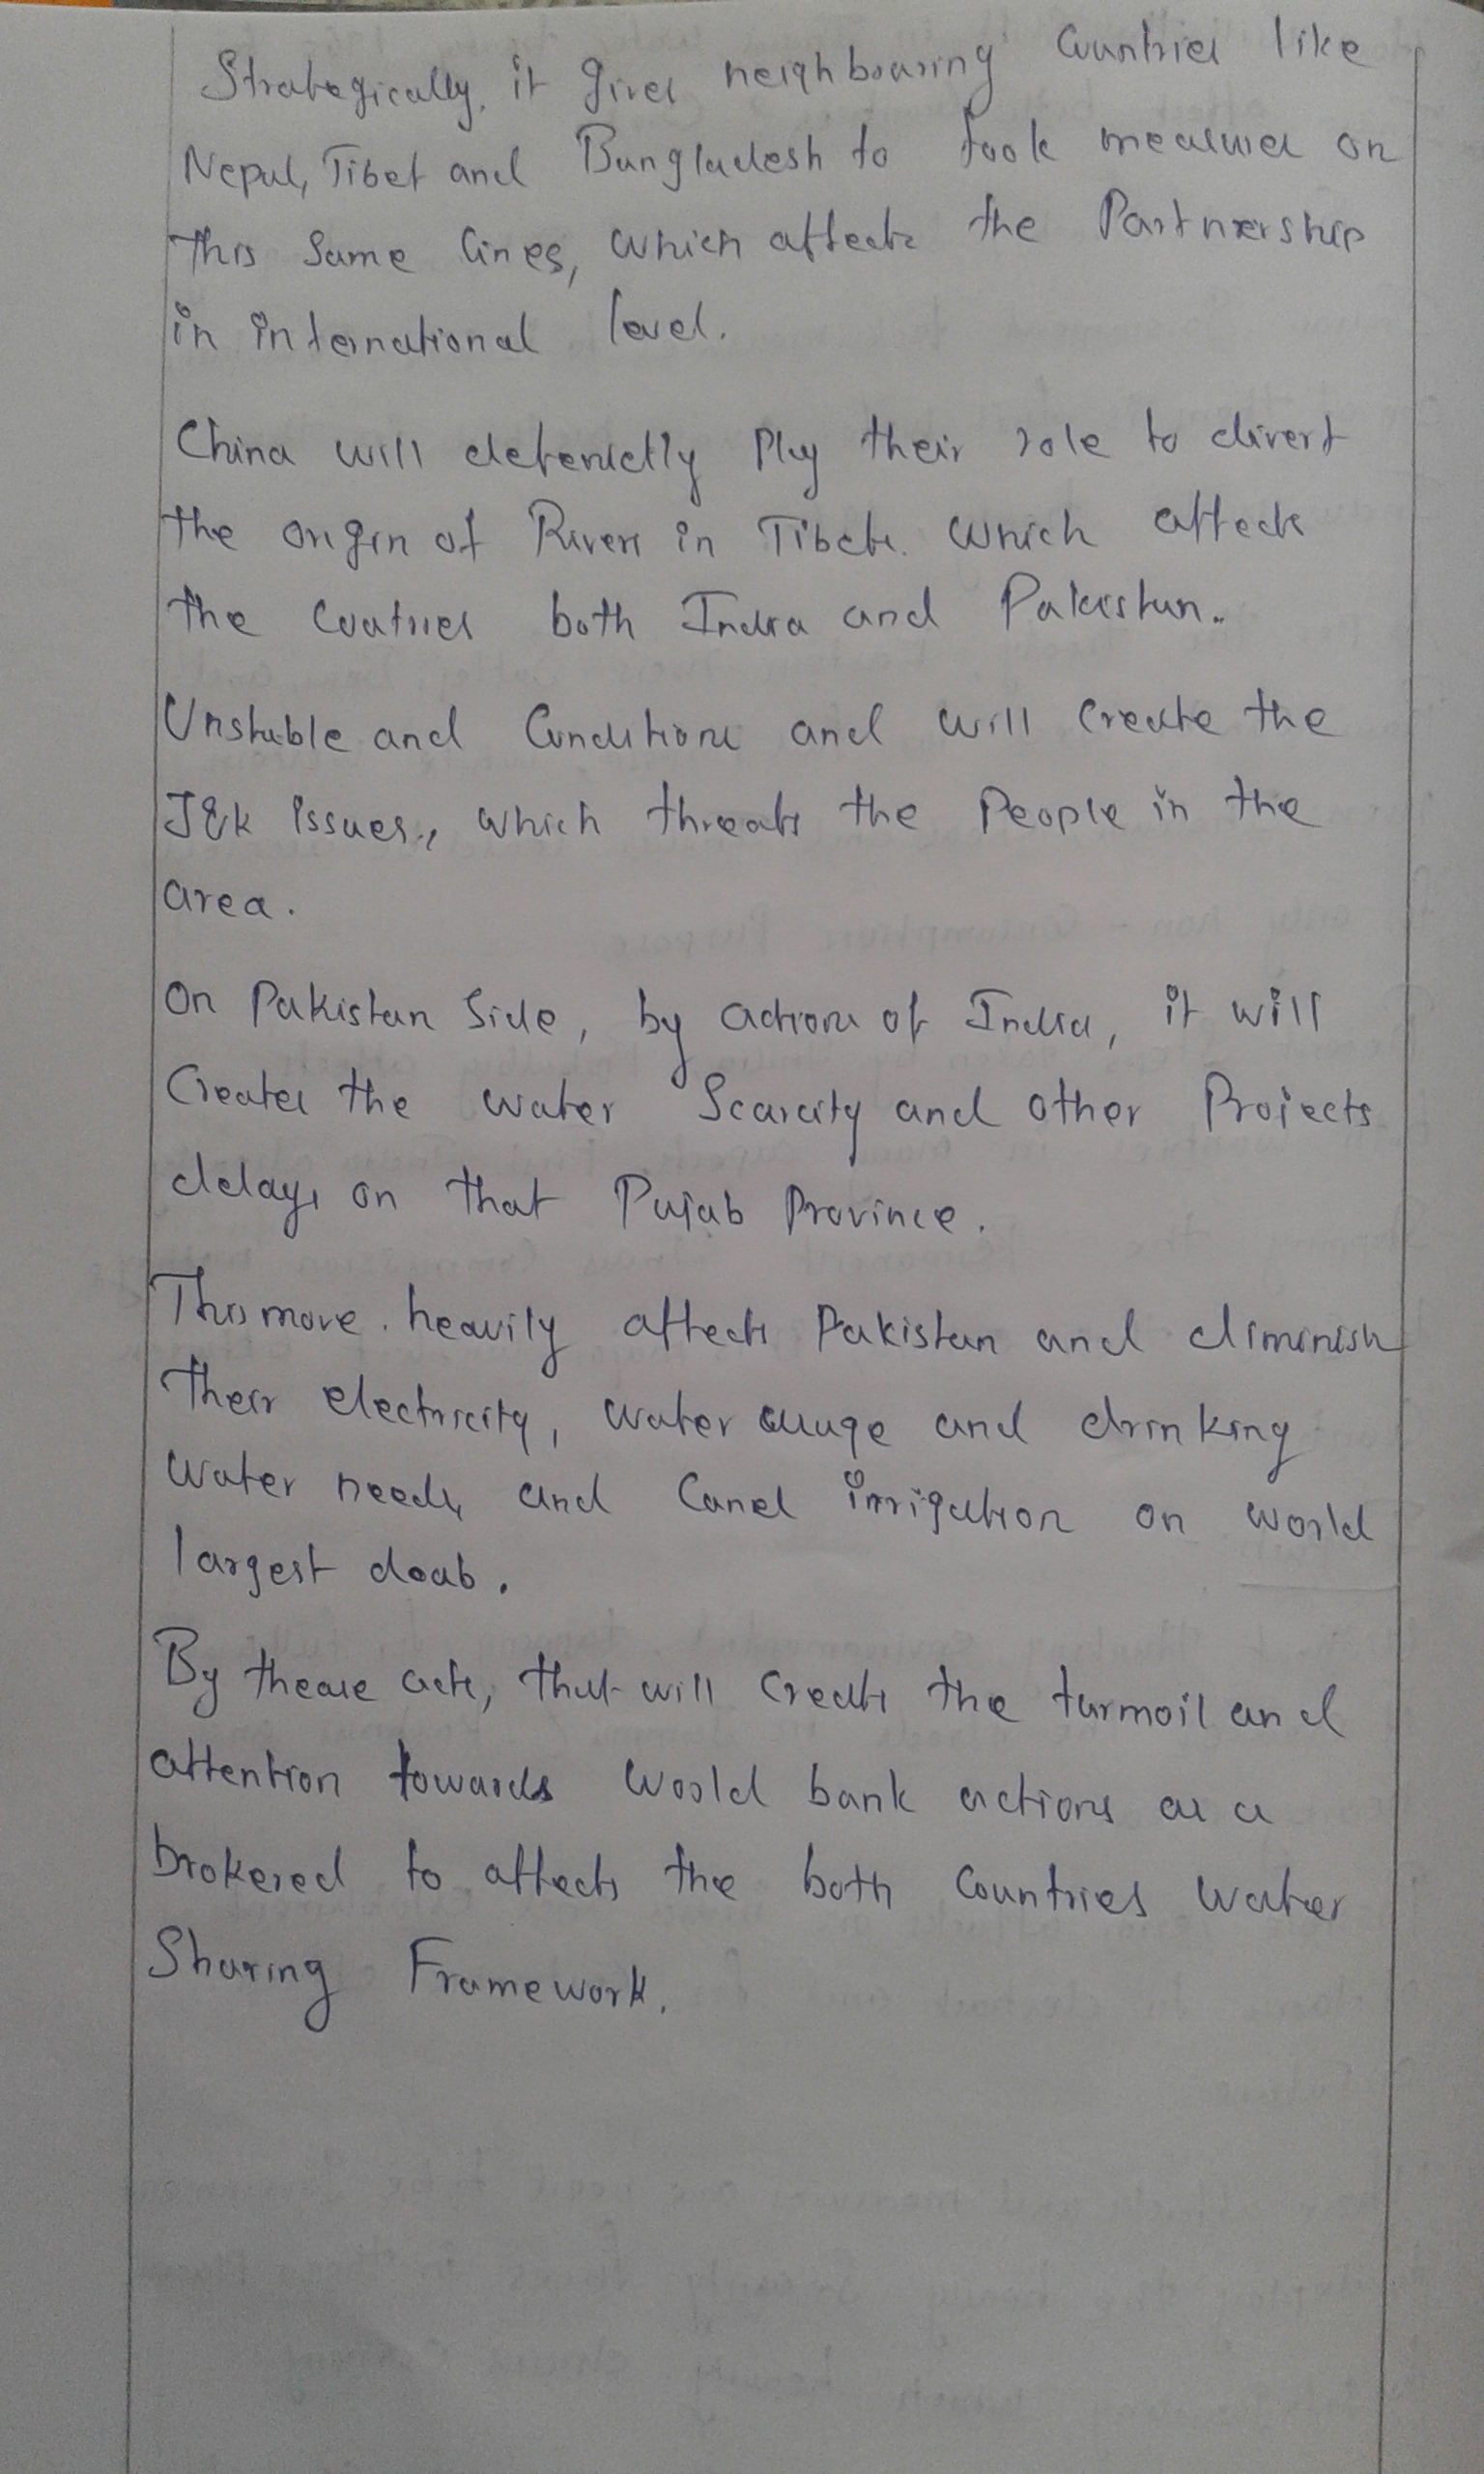 Strategically, it gives neighbouring Countries like
Nepal, Tibet and Bangladesh to took measures on
this same lines, which affects the Partnership
in international level.
China will defenietly Play their role to divert
the origin of Rivers in Tibet. which affects
the Coutries both India and Pakistan.
Unstable and Conditions and will create the
J&k issues, which threats the People in the
area.
On Pakistan Side, by actions of India, it will
Creates the water Scarcity and other Projects
delays on that Pujab Province.
This move heavily affects Pakistan and diminish
their electricity, water usage and drinking
water needs, and Canel irrigation on world
largest doab.
By these acts, that will creats the turmoil and
attention towards World bank actions as a
brokered to affects the both Countries water
Sharing Framework.